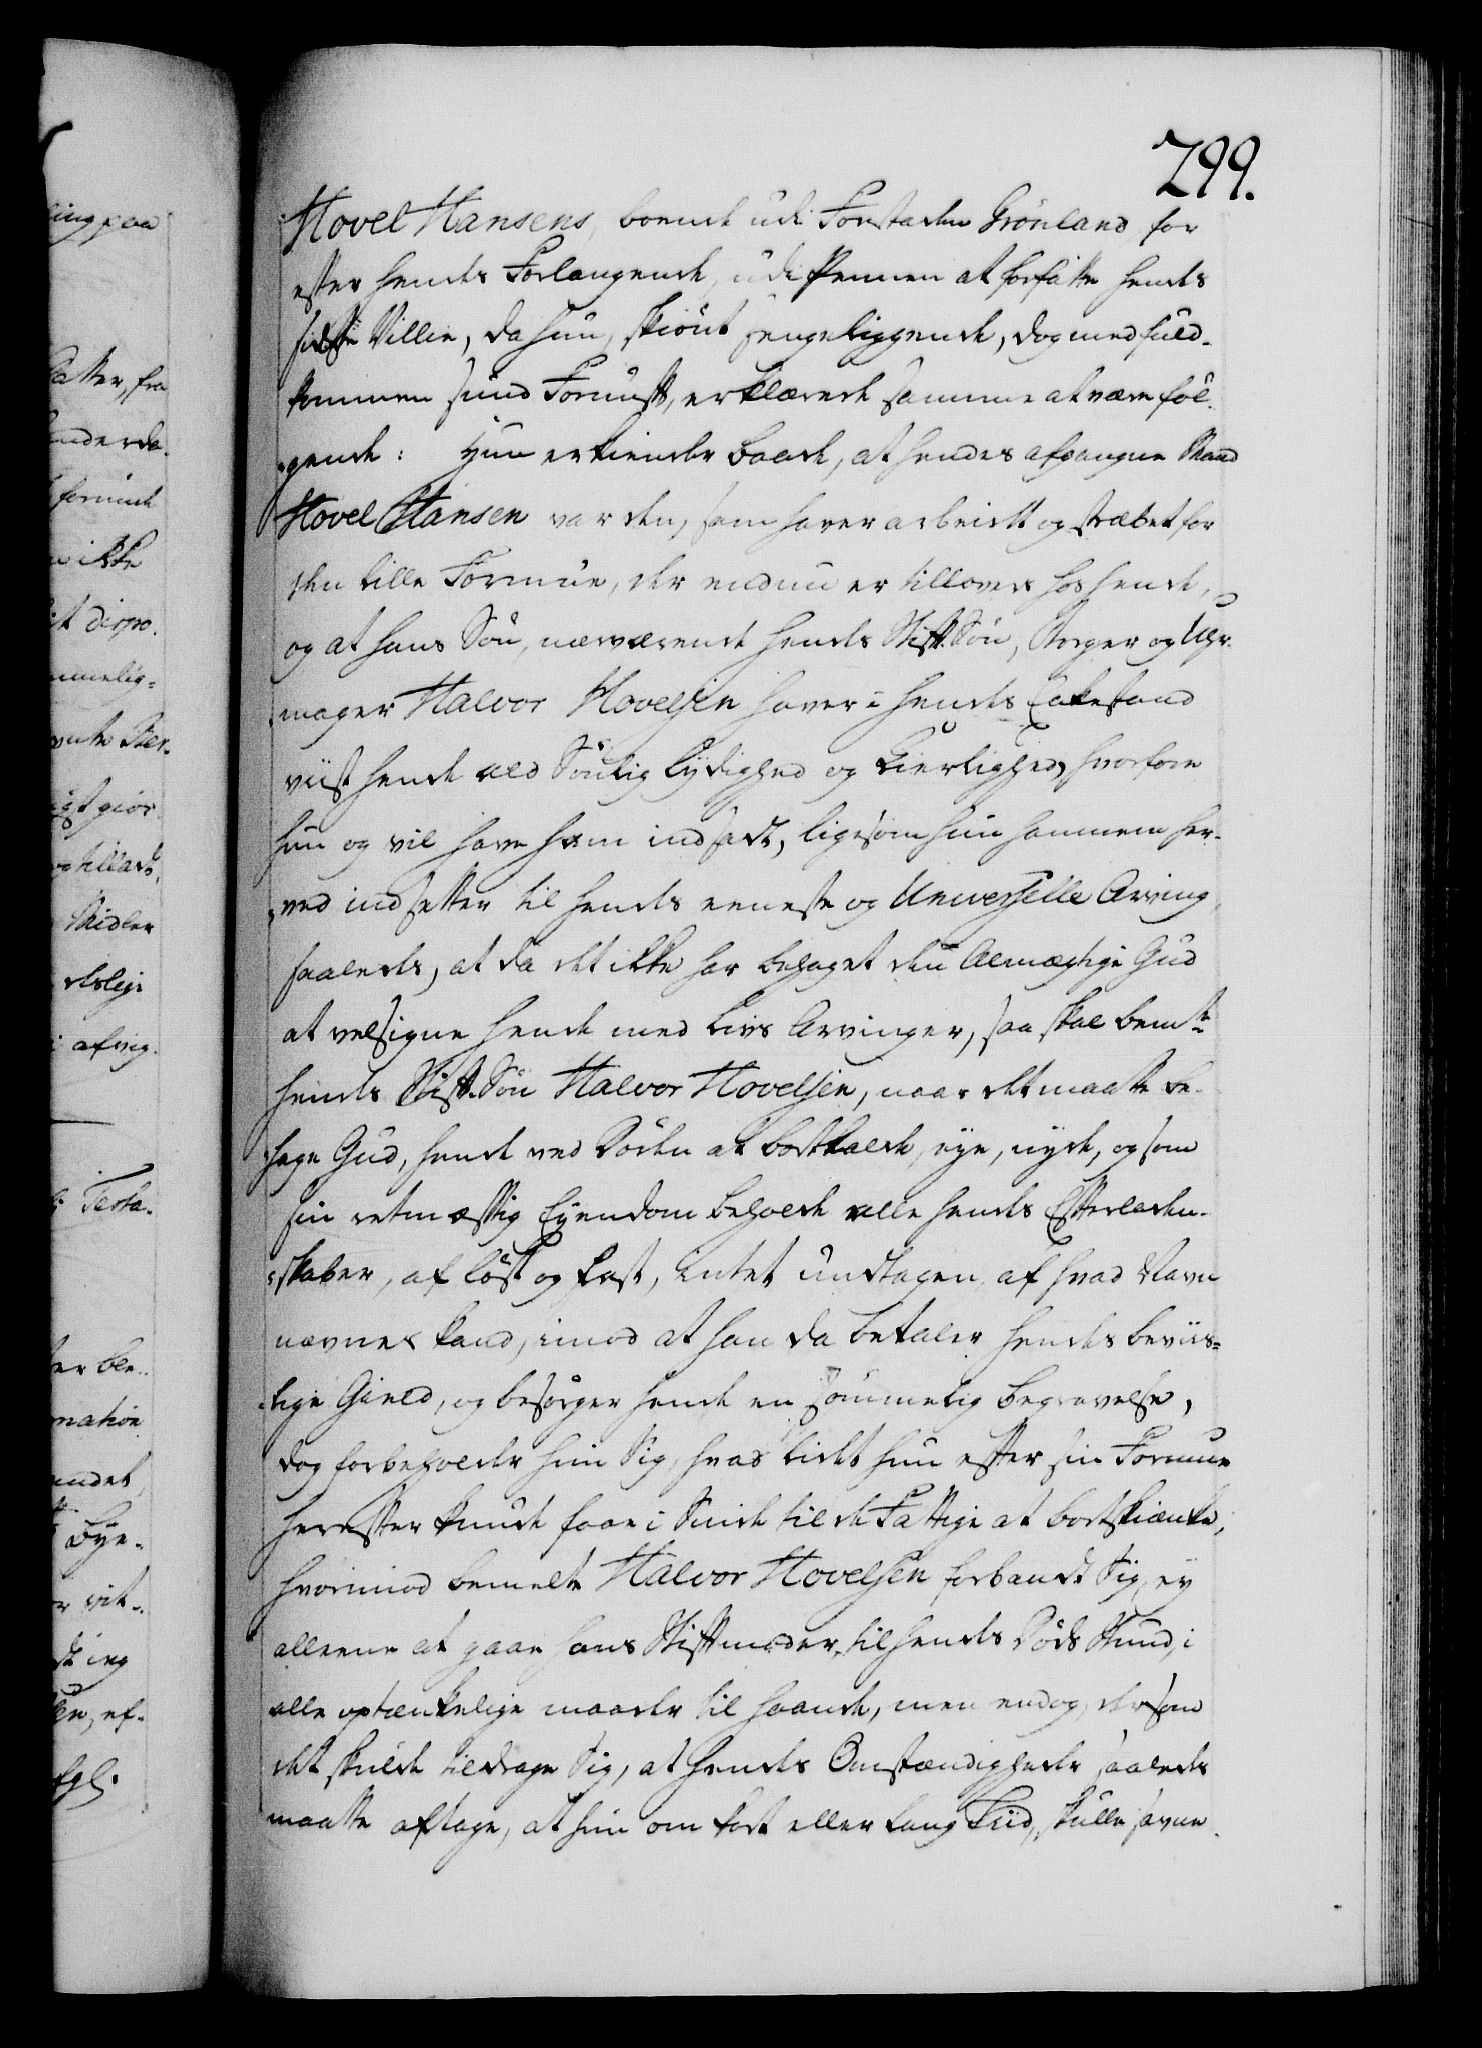 299.
Hovel Hansens, boende udi Forstaden Grønland, for
efter hendes Forlangende, udi Pennen at forfatte hendes
sidste Villie, da hun, skiønt sengeliggende, dog med fuld-
kommen sund Fornuft, erklærede samme at være føl-
gende: Hun erkiender baade, at hendes afgangne Mand
Hovel Hansen var den, som haver arbeidet og stræbet for
den lille Formue, der endnu er tillovers hos hende,
og at hans Søn, nærværende hendes Stiff-Søn, Borger og Uhr-
mager Halvor Hovelsen haver i hendes Enkestand
viist hende ald Sønlig Lydighed og Kierlighed, hvorfore
hun og vil have ham indsadt, ligesom hun hannem her-
ved indsetter til hendes eeneste og Universelle Arving
saaledes, at da det ikke har behaget den Almægtige Gud
at velsigne hende med Livs Arvinger, saa skal bemte
hendes Stiff-Søn Halvor Hovelsen, naar det maatte be-
hage Gud, hende ved Døden at bortkalde, eye, nyde, og som
sin retmæssig Eyendom beholde alle hendes Efterladen-
skaber, af løst og fast, intet undtagen, af hvad Navn
nævnes kand, imod at han da betaler hendes beviis-
lige Gield, og besørger hende en sømmelig Begravelse,
dog forbeholder hun Sig, hvad lidet hun efter sin Formue
herefter kunde faae i Sinde til de Fattige at bortskienke,
hvorimod bemelte Halvor Hovelsen forbandt Sig, ey
alleene at gaae hans Stifmoder, til hendes Døds Stund, i
alle optænkelige maader til haande, men endog, dersom
det skulde tildrage Sig, at hendes Omstændigheder saaledes
maatte aftage, at hun om kort eller lang Tiid, skulle savne